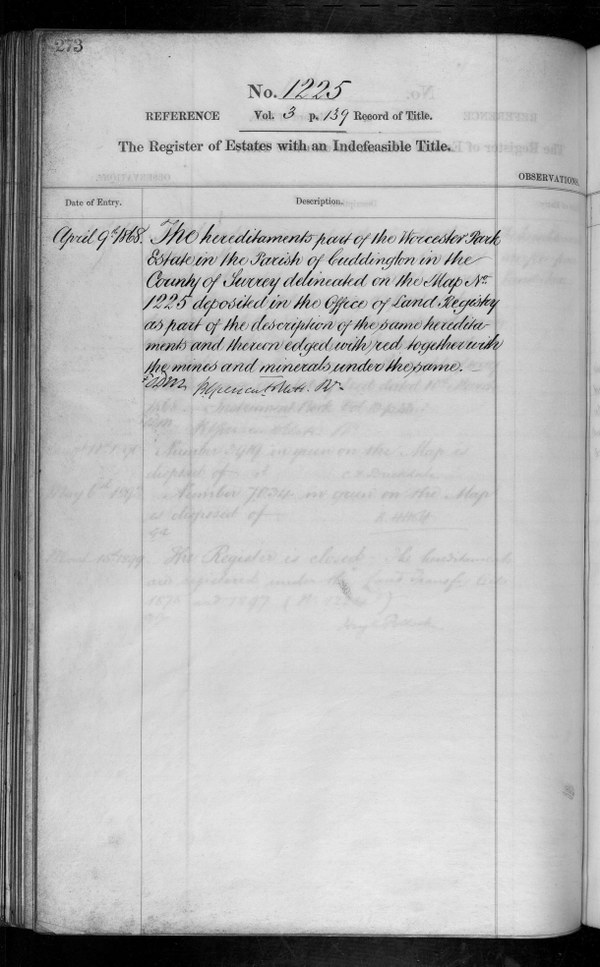 273
No. 1225
REFERENCE Vol. 3 p. 139 Record of Title.
The Register of Estates with an Indefeasible Title.
OBSERVATIONS.
Date of Entry. Description.
April 9th 1868. The hereditaments part of the Worcester Park
Estate in the Parish of Cuddington in the
County of Surrey delineated on the Map No.
1225 deposited in the Office of Land Registry
as part of the description of the same heredita-
ments and thereon edged with red together with
the mines and minerals under the same.
Number in green on the Map is
disposed of
May 6th Number 7034 in green on the Map
is disposed of
The Register is closed. The hereditaments
are registered under the Land Transfer Acts
1875 and 1897